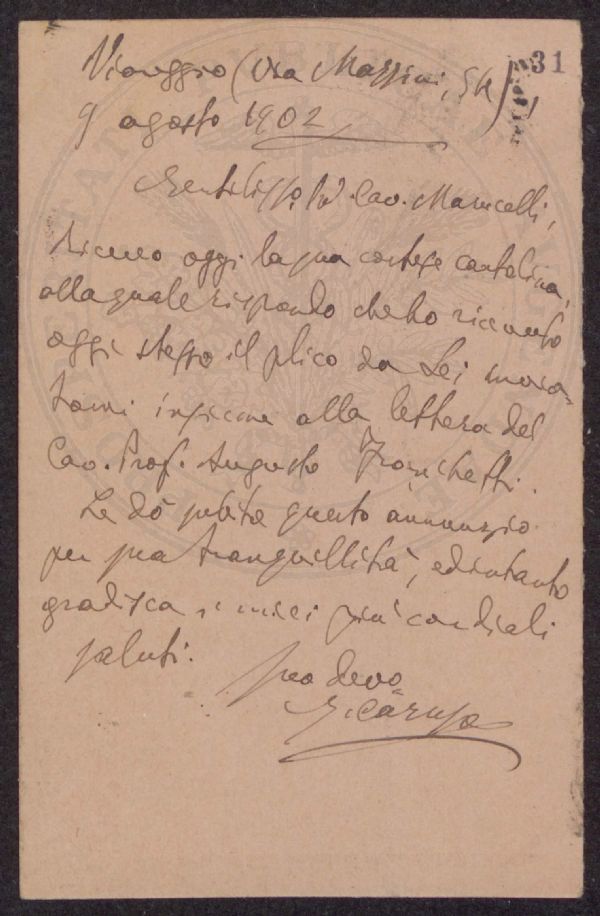 31
Viareggio (Via Mazzini, 54)
9 agosto 1902
Gentiliss. Cav. Marucelli,
ricevo oggi la sua cortese cartolina,
alla quale rispondo che ho ricevuto
oggi stesso il plico da Lei invia-
tomi insieme alla lettera del
Cav. Prof. Augusto Franchetti.
Le dò subito questo annunzio
per sua tranquillità, ed intanto
gradisca i miei più cordiali
saluti.
Suo devo